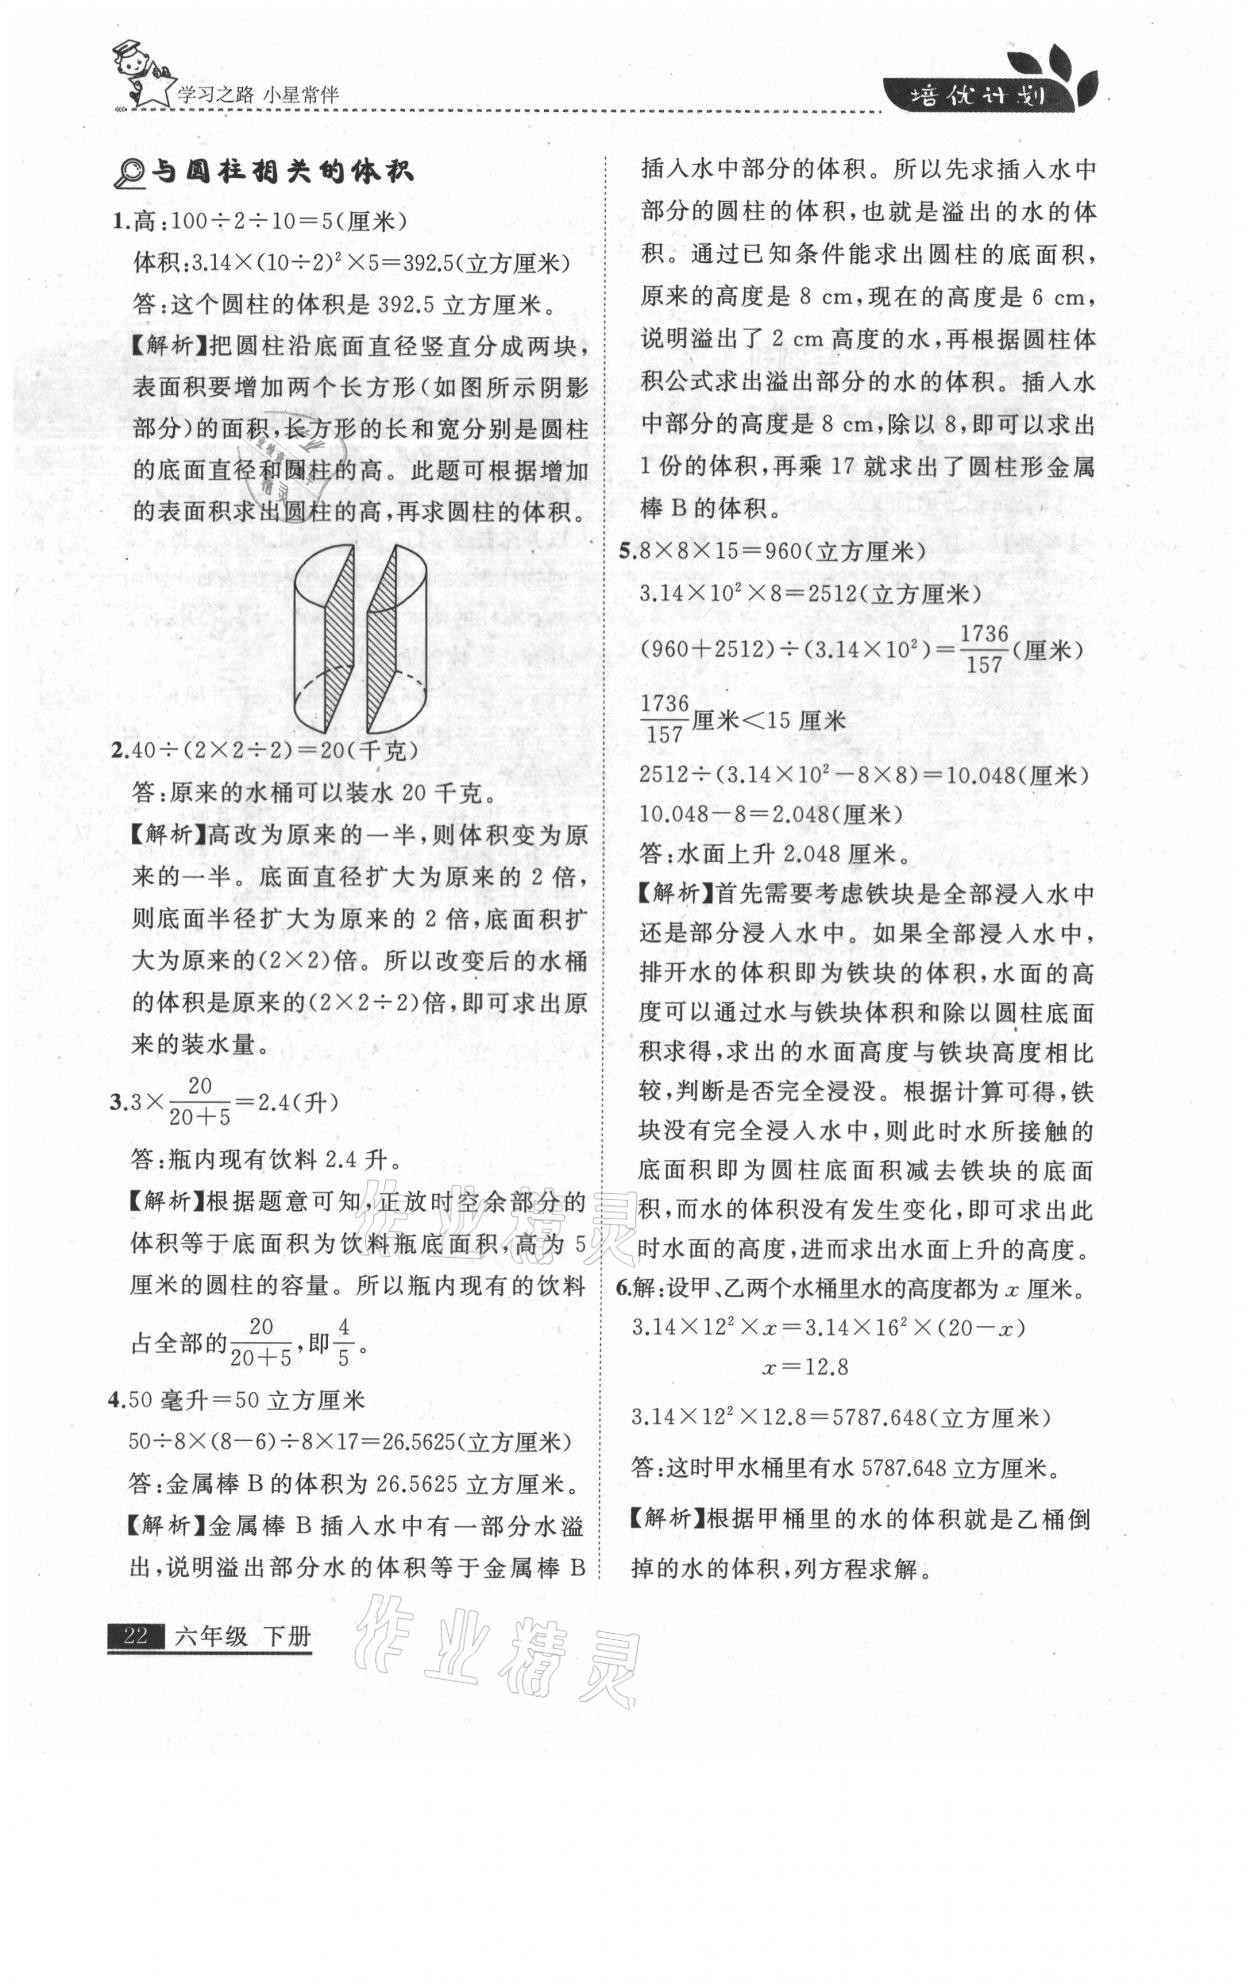 学习之路 小星常伴
培优计划
与圆柱相关的体积
1.高:100÷2÷10=5(厘米)
体积:3.14×(10÷2)²×5=392.5(立方厘米)
答:这个圆柱的体积是 392.5 立方厘米。
【解析】把圆柱沿底面直径竖直分成两块,
表面积要增加两个长方形(如图所示阴影
部分)的面积,长方形的长和宽分别是圆柱
的底面直径和圆柱的高。此题可根据增加
的表面积求出圆柱的高,再求圆柱的体积。
2.40÷(2×2÷2)=20(千克)
答:原来的水桶可以装水 20 千克。
【解析】高改为原来的一半,则体积变为原
来的一半。底面直径扩大为原来的 2 倍,
则底面半径扩大为原来的 2 倍,底面积扩
大为原来的(2×2)倍。所以改变后的水桶
的体积是原来的(2×2÷2)倍,即可求出原
来的装水量。
3.3×20/(20+5)=2.4(升)
答:瓶内现有饮料 2.4 升。
【解析】根据题意可知,正放时空余部分的
体积等于底面积为饮料瓶底面积,高为 5
厘米的圆柱的容量。所以瓶内现有的饮料
占全部的20/(20+5),即4/5。
4.50 毫升=50 立方厘米
50÷8×(8-6)÷8×17=26.5625(立方厘米)
答:金属棒 B 的体积为 26.5625 立方厘米。
【解析】金属棒 B 插入水中有一部分水溢
出,说明溢出部分水的体积等于金属棒 B
插入水中部分的体积。所以先求插入水中
部分的圆柱的体积,也就是溢出的水的体
积。通过已知条件能求出圆柱的底面积,
原来的高度是 8 cm,现在的高度是 6 cm,
说明溢出了 2 cm 高度的水,再根据圆柱体
积公式求出溢出部分的水的体积。插入水
中部分的高度是 8 cm,除以 8,即可以求出
1 份的体积,再乘 17 就求出了圆柱形金属
棒 B 的体积。
5.8×8×15=960(立方厘米)
3.14×10²×8=2512(立方厘米)
(960+2512)÷(3.14×10²)=1736/157(厘米)
1736/157厘米<15 厘米
2512÷(3.14×10²-8×8)=10.048(厘米)
10.048-8=2.048(厘米)
答:水面上升 2.048 厘米。
【解析】首先需要考虑铁块是全部浸入水中
还是部分浸入水中。如果全部浸入水中,
排开水的体积即为铁块的体积,水面的高
度可以通过水与铁块体积和除以圆柱底面
积求得,求出的水面高度与铁块高度相比
较,判断是否完全浸没。根据计算可得,铁
块没有完全浸入水中,则此时水所接触的
底面积即为圆柱底面积减去铁块的底面
积,而水的体积没有发生变化,即可求出此
时水面的高度,进而求出水面上升的高度。
6.解:设甲、乙两个水桶里水的高度都为 x 厘米。
3.14×12²×x=3.14×16²×(20-x)
x=12.8
3.14×12²×12.8=5787.648(立方厘米)
答:这时甲水桶里有水 5787.648 立方厘米。
【解析】根据甲桶里的水的体积就是乙桶倒
掉的水的体积,列方程求解。
22 六年级 下册
作业精灵
作业精灵